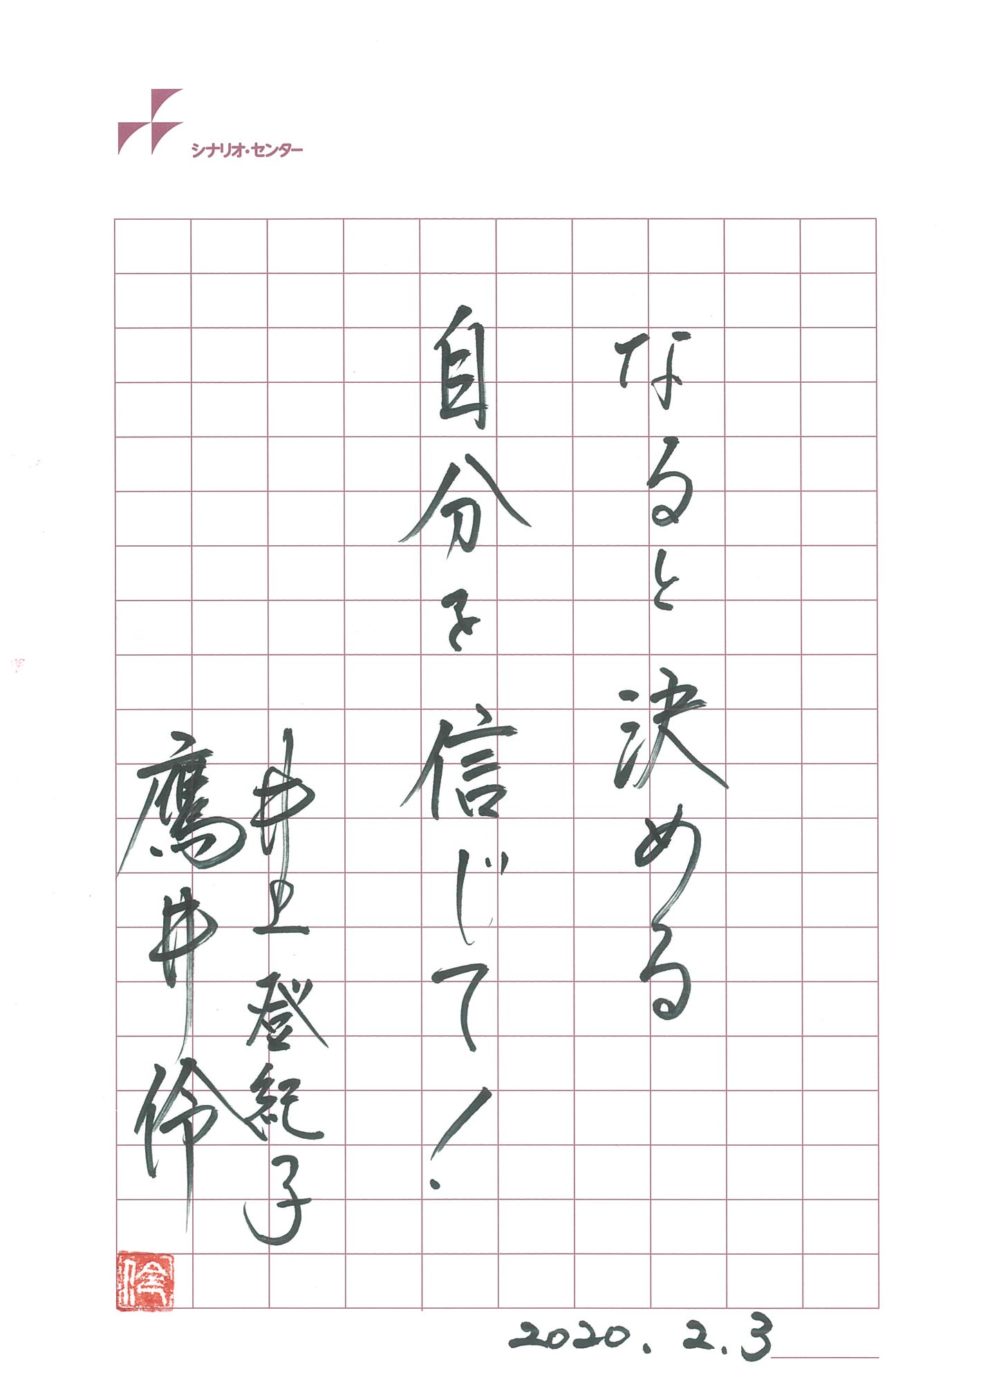 シナリオ・センター
なると決める
自分を信じて!
井上登紀子
鷹井伶
2020.2.3